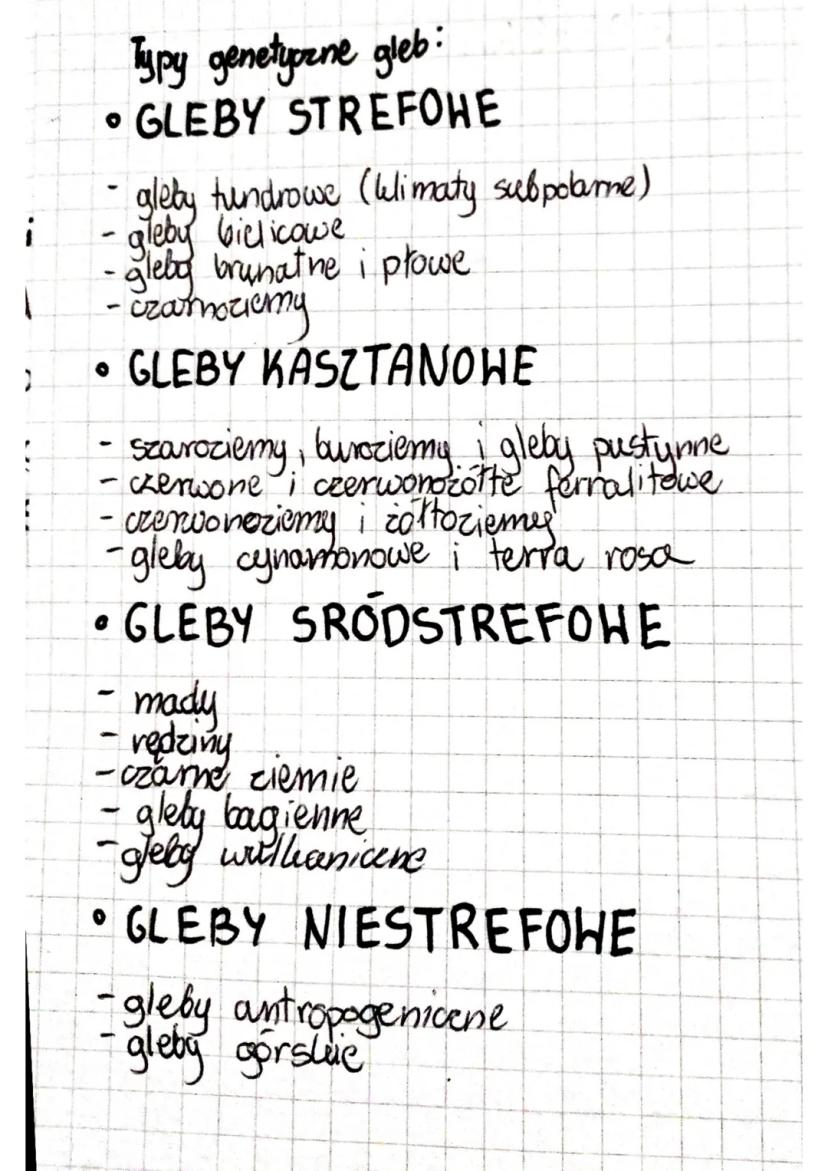 Typy genetyczne gleb:
• GLEBY STREFOWE
- gleby tundrowe (klimaty subpolarne)
- gleby bielicowe
- gleby brunatne i płowe
- czarnoziemy
• GLEBY KASZTANOWE
- szaroziemy, buroziemy i gleby pustynne
- czerwone i czerwonożółte ferralitowe
- czerwonoziemy i żółtoziemy
- gleby cynamonowe i terra rosa
• GLEBY ŚRÓDSTREFOWE
- mady
- rędziny
- czarne ziemie
- gleby bagienne
- gleby wulkaniczne
• GLEBY NIESTREFOWE
- gleby antropogeniczne
- gleby górskie